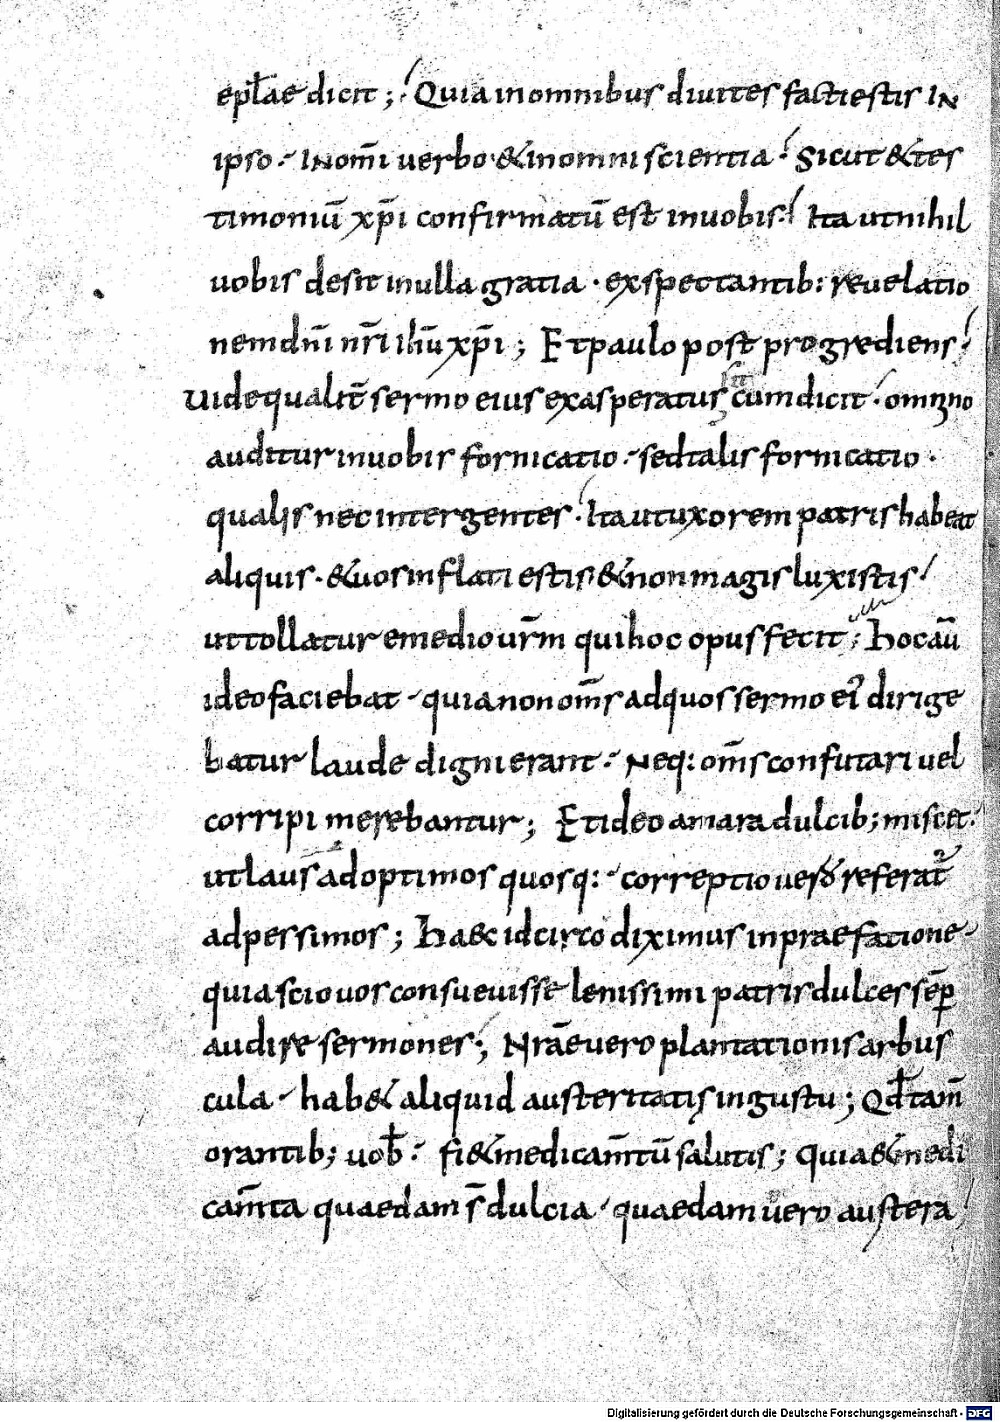 epl̄ae dicit; Quia in omnibus diuites facti estis IN
ipso · INom̄i uerbo · & in omni scientia · Sicut & tes
timoniū xp̄i confirmatū est in uobis · Ita ut nihil
uobis desit in ulla gratia · exspectantib: reuelatio
nem dn̄i nr̄i ihū xp̄i; Et paulo post progrediens
Uide qualit̄ sermo eius exasperatus sit cum dicit · omnino
auditur in uobis fornicatio · sed talis fornicatio ·
qualis nec inter gentes · Ita ut uxorem patris habeat
aliquis · & uos inflati estis & non magis luxistis
ut tollatur e medio ur̄m qui hoc opus fecit; Hoc aū
ideo faciebat · quia non om̄s ad quos sermo ei' dirige
batur laude digni erant · Neq: om̄s confutari uel
corripi merebantur; Et ideo amara dulcib; miscet ·
ut laus ad optimos quosq: · correptio uero referat̄
ad pessimos; Haec idcirco diximus in praefatione ·
quia scio uos consueuisse lenissimi patris dulces sēp
audire sermones; Nr̄ae uero plantationis arbus
cula · hab& aliquid austeritatis in gustu; Qd̄ tam̄
orantib; uob̄ · fi& medicam̄tū salutis; Quia & medi
cam̄ta quaedam s̄ dulcia · quaedam uero austera
Digitalisierung gefördert durch die Deutsche Forschungsgemeinschaft - DFG